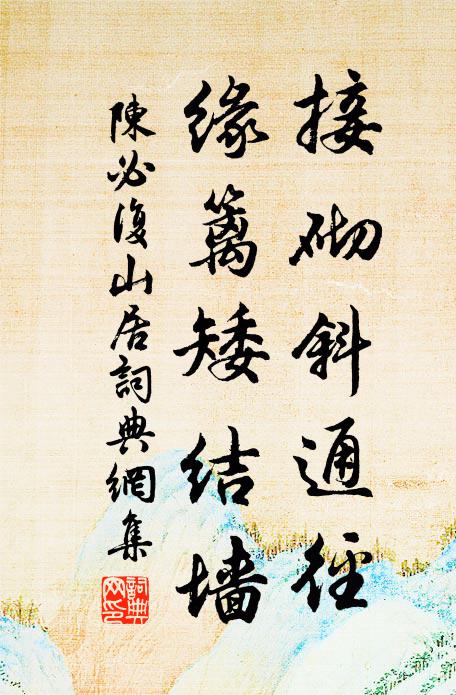 接砌斜通徑
緣篱矮结墙
陳必復山居詞典網集
詞典网印